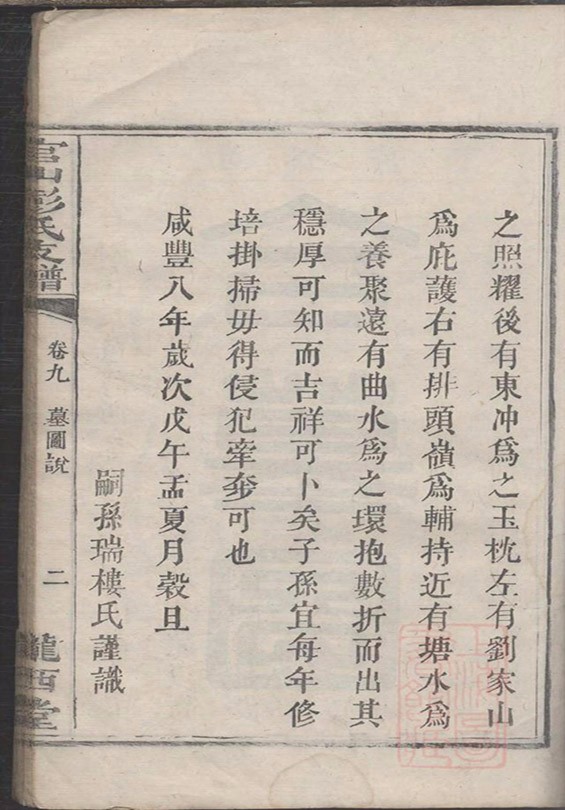 之照耀後有東冲爲之玉枕左有劉家山
爲庇護右有排頭嶺爲輔持近有塘水爲
之養聚遠有曲水爲之環抱數折而出其
穩厚可知而吉祥可卜矣子孫宜每年修
培掛掃毋得侵犯牽奔可也
咸豐八年歲次戊午孟夏月穀旦
嗣孫瑞樓氏謹識
官山彭氏支譜
卷九 墓圖說 二
隴西堂